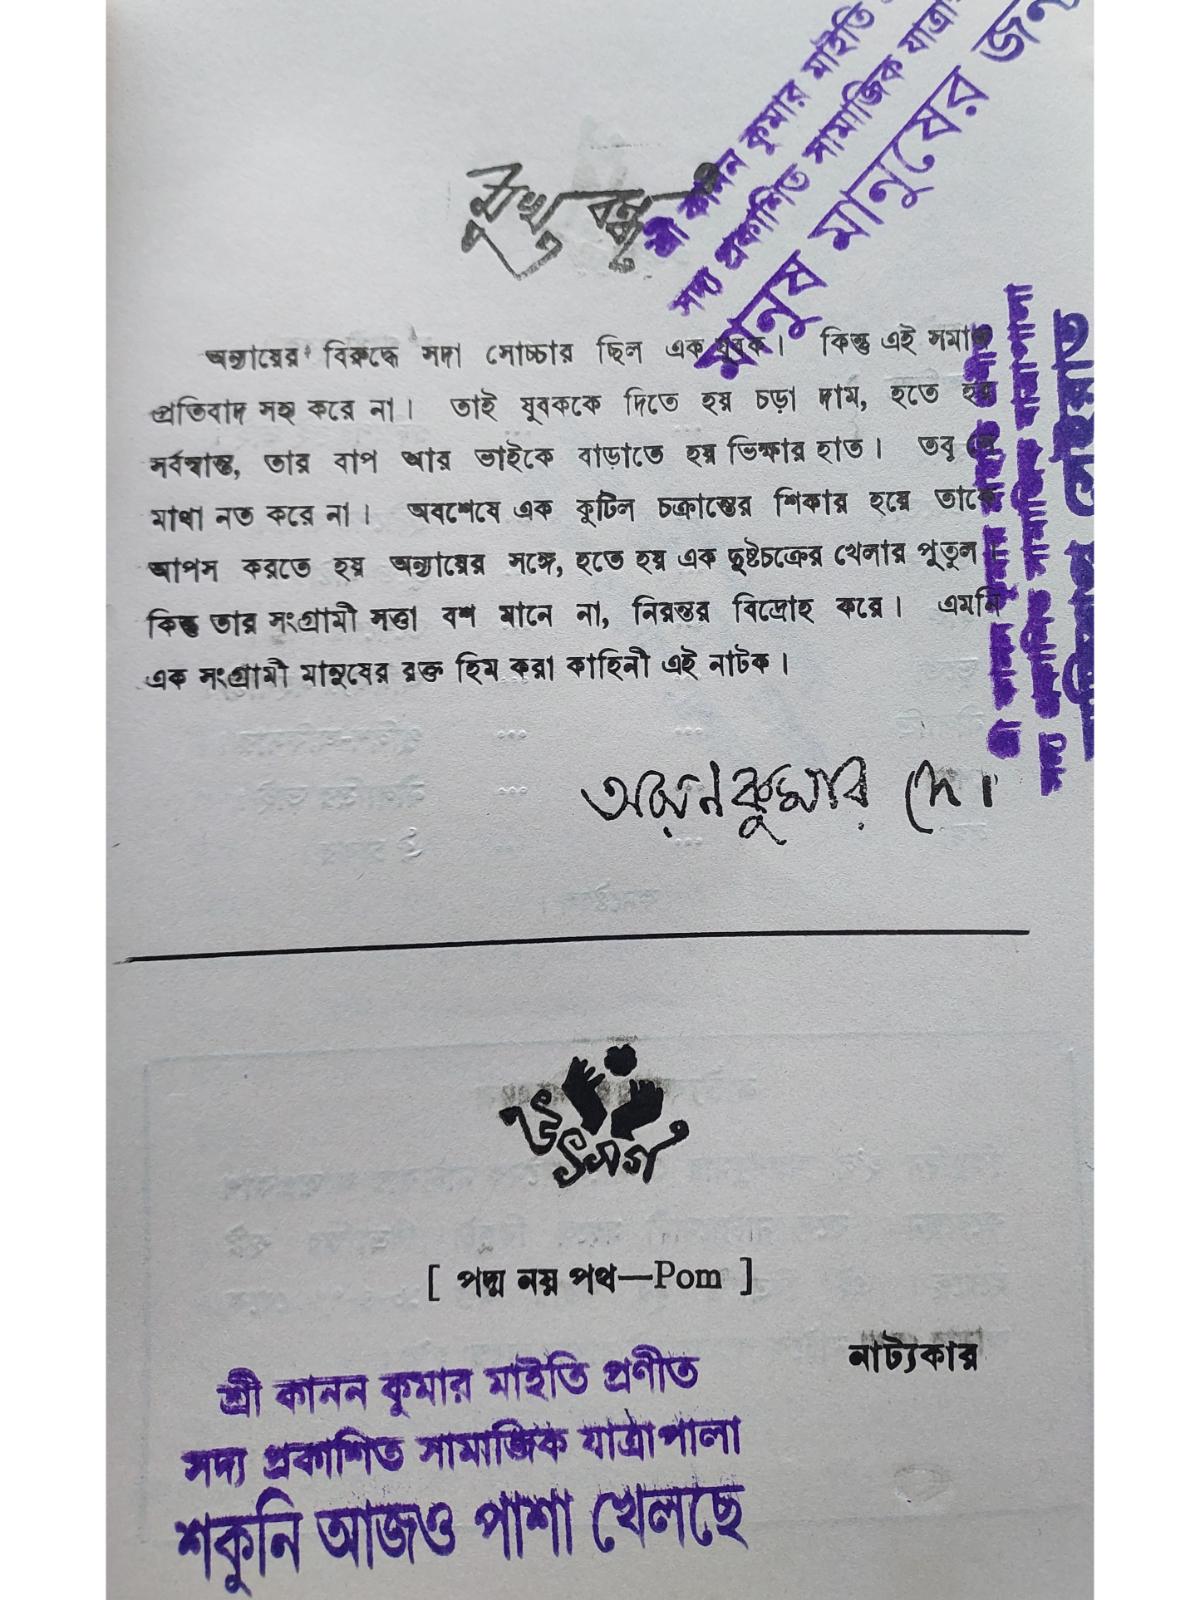 মুখবন্ধ
শ্রী কানন কুমার মাইতি
সদ্য প্রকাশিত সামাজিক যাত্রা
মানুষ মানুষের জন্য
অন্যায়ের বিরুদ্ধে সদা সোচ্চার ছিল এক যুবক। কিন্তু এই সমাজ
প্রতিবাদ সহ্য করে না। তাই যুবককে দিতে হয় চড়া দাম, হতে হয়
সর্বস্বান্ত, তার বাপ আর ভাইকে বাড়াতে হয় ভিক্ষার হাত। তবু সে
মাথা নত করে না। অবশেষে এক কুটিল চক্রান্তের শিকার হয়ে তাকে
আপস করতে হয় অন্যায়ের সঙ্গে, হতে হয় এক দুষ্টচক্রের খেলার পুতুল।
কিন্তু তার সংগ্রামী সত্তা বশ মানে না, নিরন্তর বিদ্রোহ করে। এমনি
এক সংগ্রামী মানুষের রক্ত হিম করা কাহিনী এই নাটক।
শ্রী কানন কুমার মাইতি প্রণীত
সদ্য প্রকাশিত সামাজিক যাত্রাপালা
কুমার দে।
উৎসর্গ
[ পদ্ম নয় পথ—Pom ]
নাট্যকার
শ্রী কানন কুমার মাইতি প্রণীত
সদ্য প্রকাশিত সামাজিক যাত্রাপালা
শকুনি আজও পাশা খেলছে